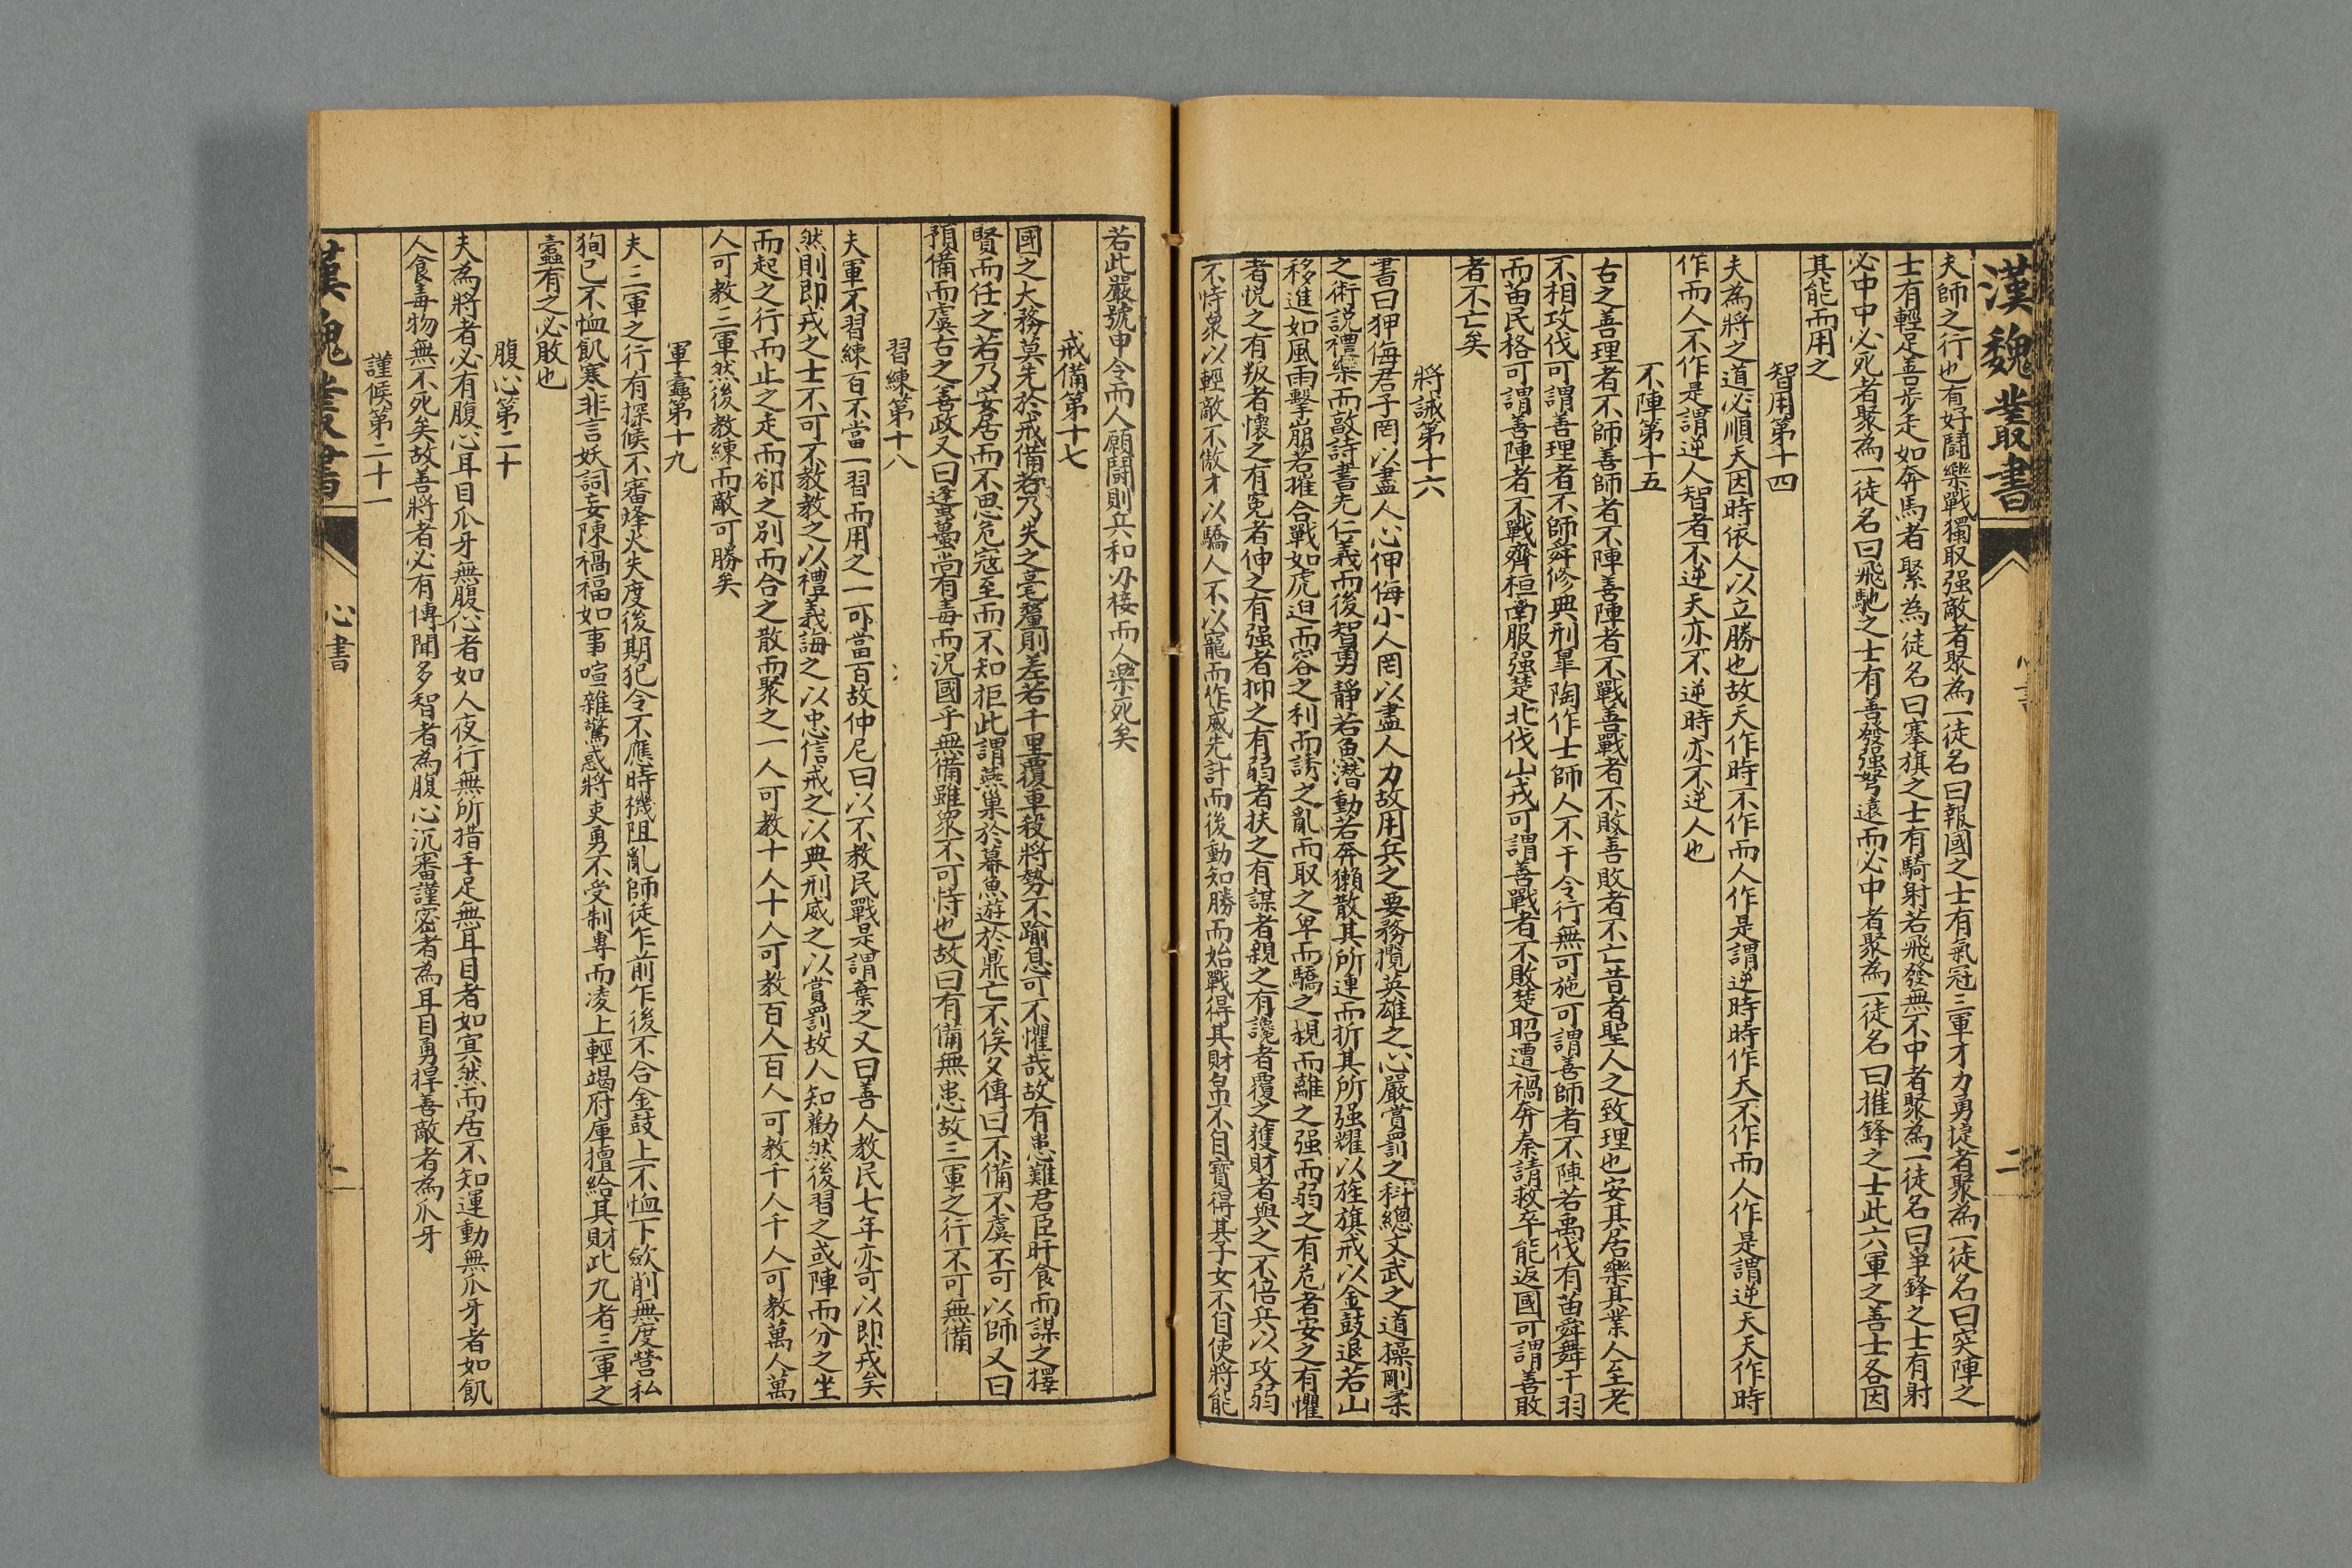 漢魏叢書
二
夫師之行也有好鬪樂戰獨取强敵者聚為一徒名曰報國之士有氣冠三軍才力勇捷者聚為一徒名曰突陣之
士有輕足善步走如奔馬者聚為一徒名曰搴旗之士有騎射若飛發無不中者聚為一徒名曰爭鋒之士有射
必中中必死者聚為一徒名曰飛馳之士有善發强弩遠而必中者聚為一徒名曰摧鋒之士此六軍之善士各因
其能而用之
智用第十四
夫為將之道必順天因時依人以立勝也故天作時不作而人作是謂逆時時作天不作而人作是謂逆天天作時
作而人不作是謂逆人智者不逆天亦不逆時亦不逆人也
不陣第十五
古之善理者不師善師者不陣善陣者不戰善戰者不敗善敗者不亡昔者聖人之致理也安其居樂其業人至老
不相攻伐可謂善理者不師舜修典刑臯陶作士師人不干令行無可施可謂善師者不陣若禹伐有苗舜舞干羽
而苗民格可謂善陣者不戰齊桓南服强楚北伐山戎可謂善戰者不敗楚昭遭禍奔秦請救卒能返國可謂善敗
者不亡矣
將誡第十六
書曰狎侮君子罔以盡人心狎侮小人罔以盡人力故用兵之要務攬英雄之心嚴賞罰之科總文武之道操剛柔
之術說禮樂而敵詩書先仁義而後智勇靜若魚潛動若奔獺散其所連而折其所强耀以旌旗戒以金鼓退若山
移進如風雨擊崩若摧合戰如虎迫而容之利而誘之亂而取之卑而驕之親而離之强而弱之有危者安之有懼
者悅之有叛者懷之有寃者伸之有强者抑之有弱者扶之有謀者親之有讒者覆之獲財者與之不倍兵以攻弱
不恃衆以輕敵不傲才以驕人不以寵而作威先計而後動知勝而始戰得其財帛不自寶得其子女不自使將能
若此嚴號申令而人願鬪則兵和刃接而人樂死矣
戒備第十七
國之大務莫先於戒備者乃失之毫釐則差若千里覆車殺將勢不踰息可不懼哉故有患難君臣旰食而謀之擇
賢而任之若乃安居而不思危寇至而不知拒此謂燕巢於幕魚遊於鼎亡不俟夕傳曰不備不虞不可以師又曰
預備而虞古之善政又曰蜂蠆尚有毒而況國乎無備雖衆不可恃也故曰有備無患故三軍之行不可無備
習練第十八
夫軍不習練百不當一習而用之一可當百故仲尼曰以不教民戰是謂棄之又曰善人教民七年亦可以即戎矣
然則即戎之士不可不教教之以禮義誨之以忠信戒之以典刑威之以賞罰故人知勸然後習之或陣而分之坐
而起之行而止之走而卻之別而合之散而聚之一人可教十人十人可教百人百人可教千人千人可教萬人萬
人可教三軍然後教練而敵可勝矣
軍蠧第十九
夫三軍之行有探候不審烽火失度後期犯令不應時機阻亂師徒乍前乍後不合金鼓上不恤下歛削無度營私
狥已不恤飢寒非言妖詞妄陳禍福如事喧雜驚惑將吏勇不受制專而凌上輕竭府庫擅給其財此九者三軍之
蠧有之必敗也
腹心第二十
夫為將者必有腹心耳目爪牙無腹心者如人夜行無所措手足無耳目者如冥然而居不知運動無爪牙者如飢
人食毒物無不死矣故善將者必有博聞多智者為腹心沉審謹密者為耳目勇捍善敵者為爪牙
謹候第二十一
漢魏叢書
心書